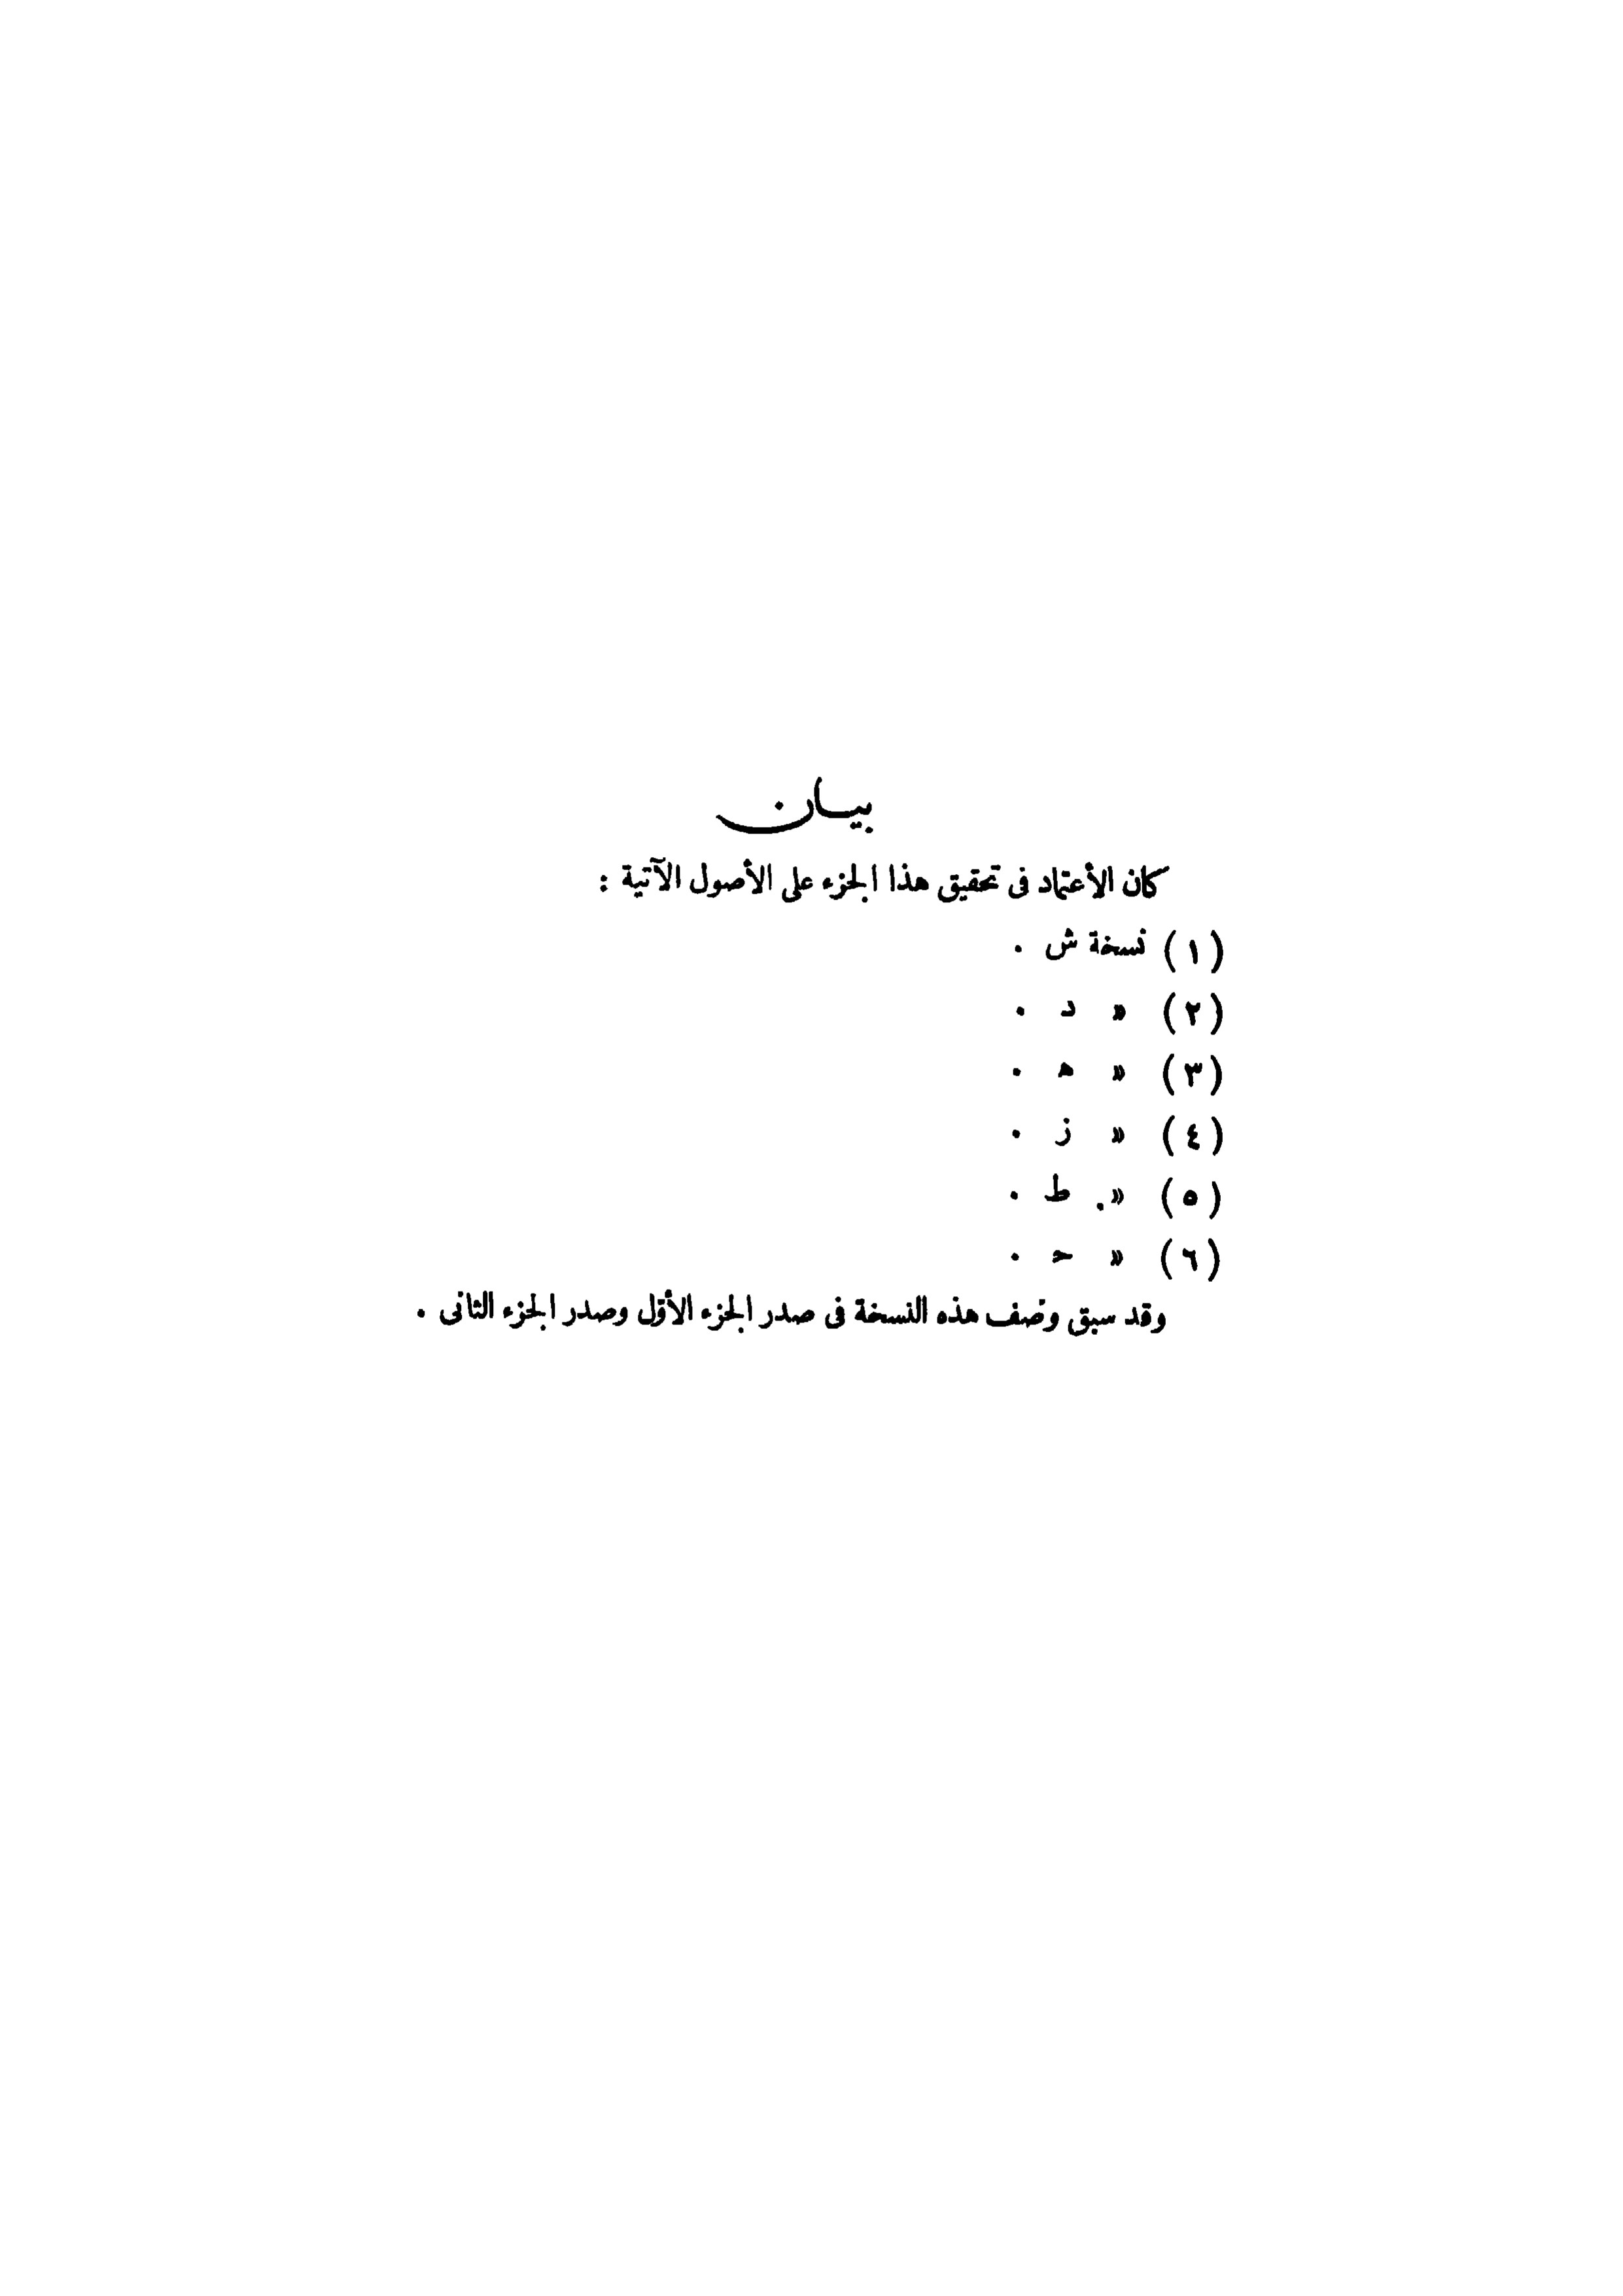 بيان
كان الأعتماد فى تحقيق هذا الجزء على الأصول الآتية :
(١) نسخة ش .
(٢) « د .
(٣) « ه .
(٤) « ز .
(٥) « . ط .
(٦) « ح .
وقد سبق وصف هذه النسخة فى صدر الجزء الأوّل وصدر الجزء الثانى .